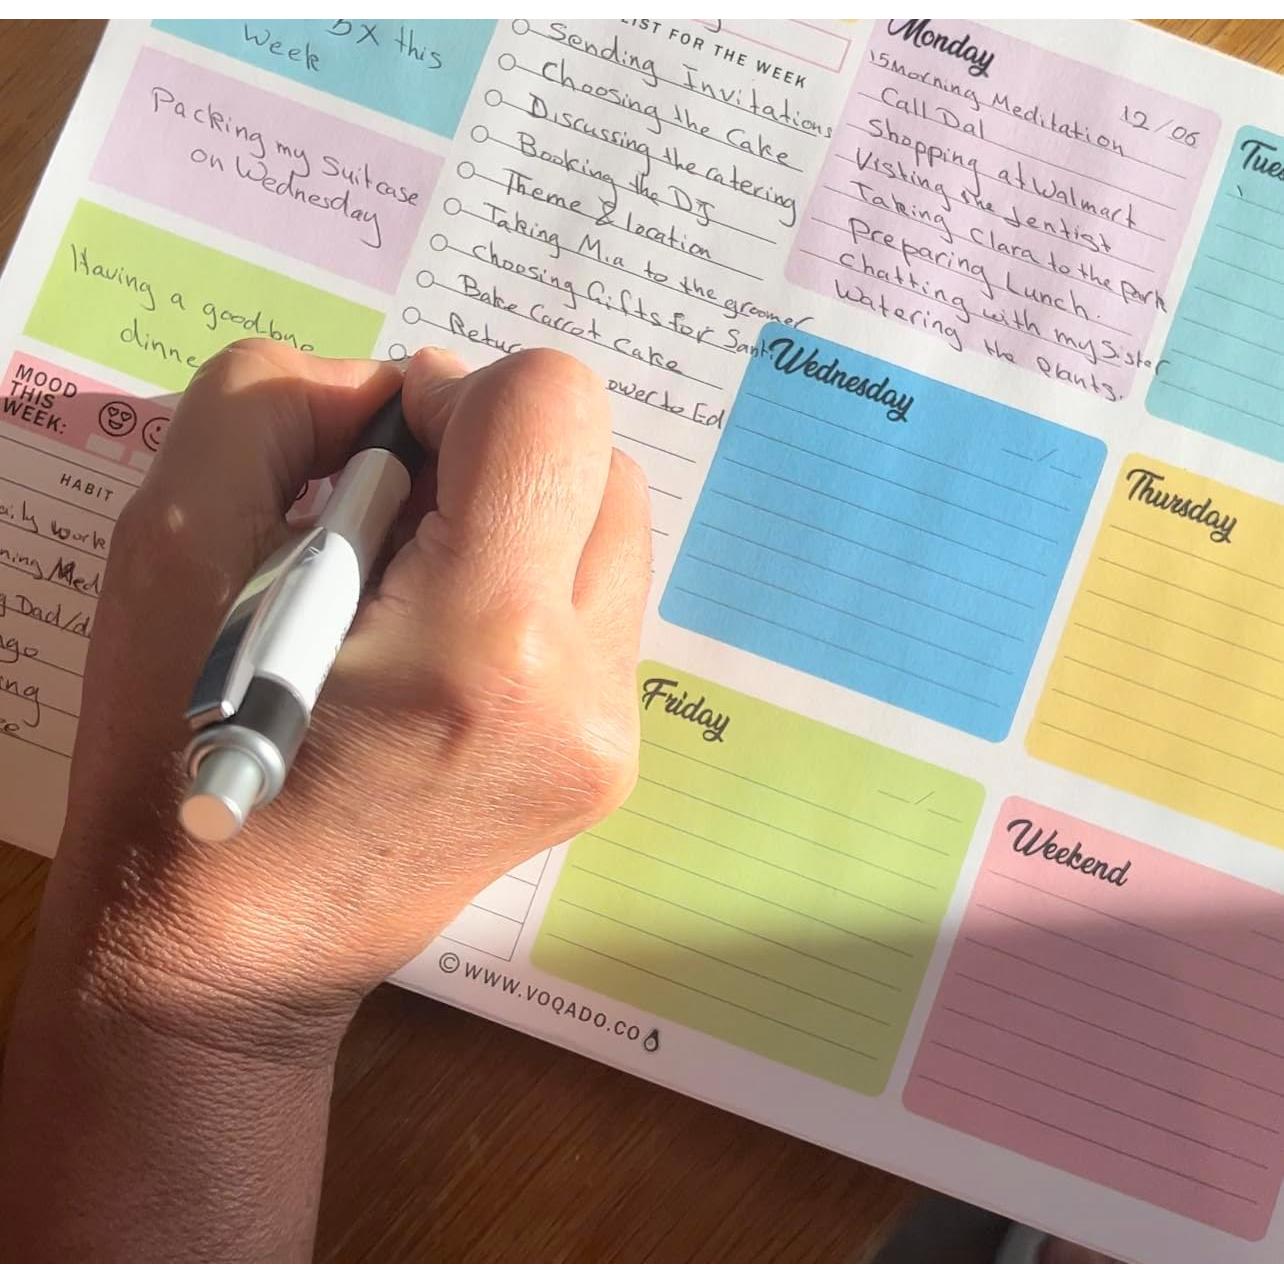 5X this
Week
Packing my Suitcase
on Wednesday
Having a goodbye
dinne
MOOD
THIS
WEEK:
HABIT
work
Med
Dad/d
LIST FOR THE WEEK
Sending Invitations
Choosing the Cake
Discussing the catering
Booking the DJ
Theme & location
Taking Mia to the groomer
choosing Gifts for Sant
Bake Carrot Cake
Retur
ower to Ed
Monday
12/06
15Morning Meditation
Call Dad
Shopping at Walmart
Visting the dentist
Taking Clara to the park
Preparing Lunch.
Chatting with my Sister
Watering the plants.
Tues
Wednesday
Thursday
Friday
Weekend
© WWW.VOQADO.CO